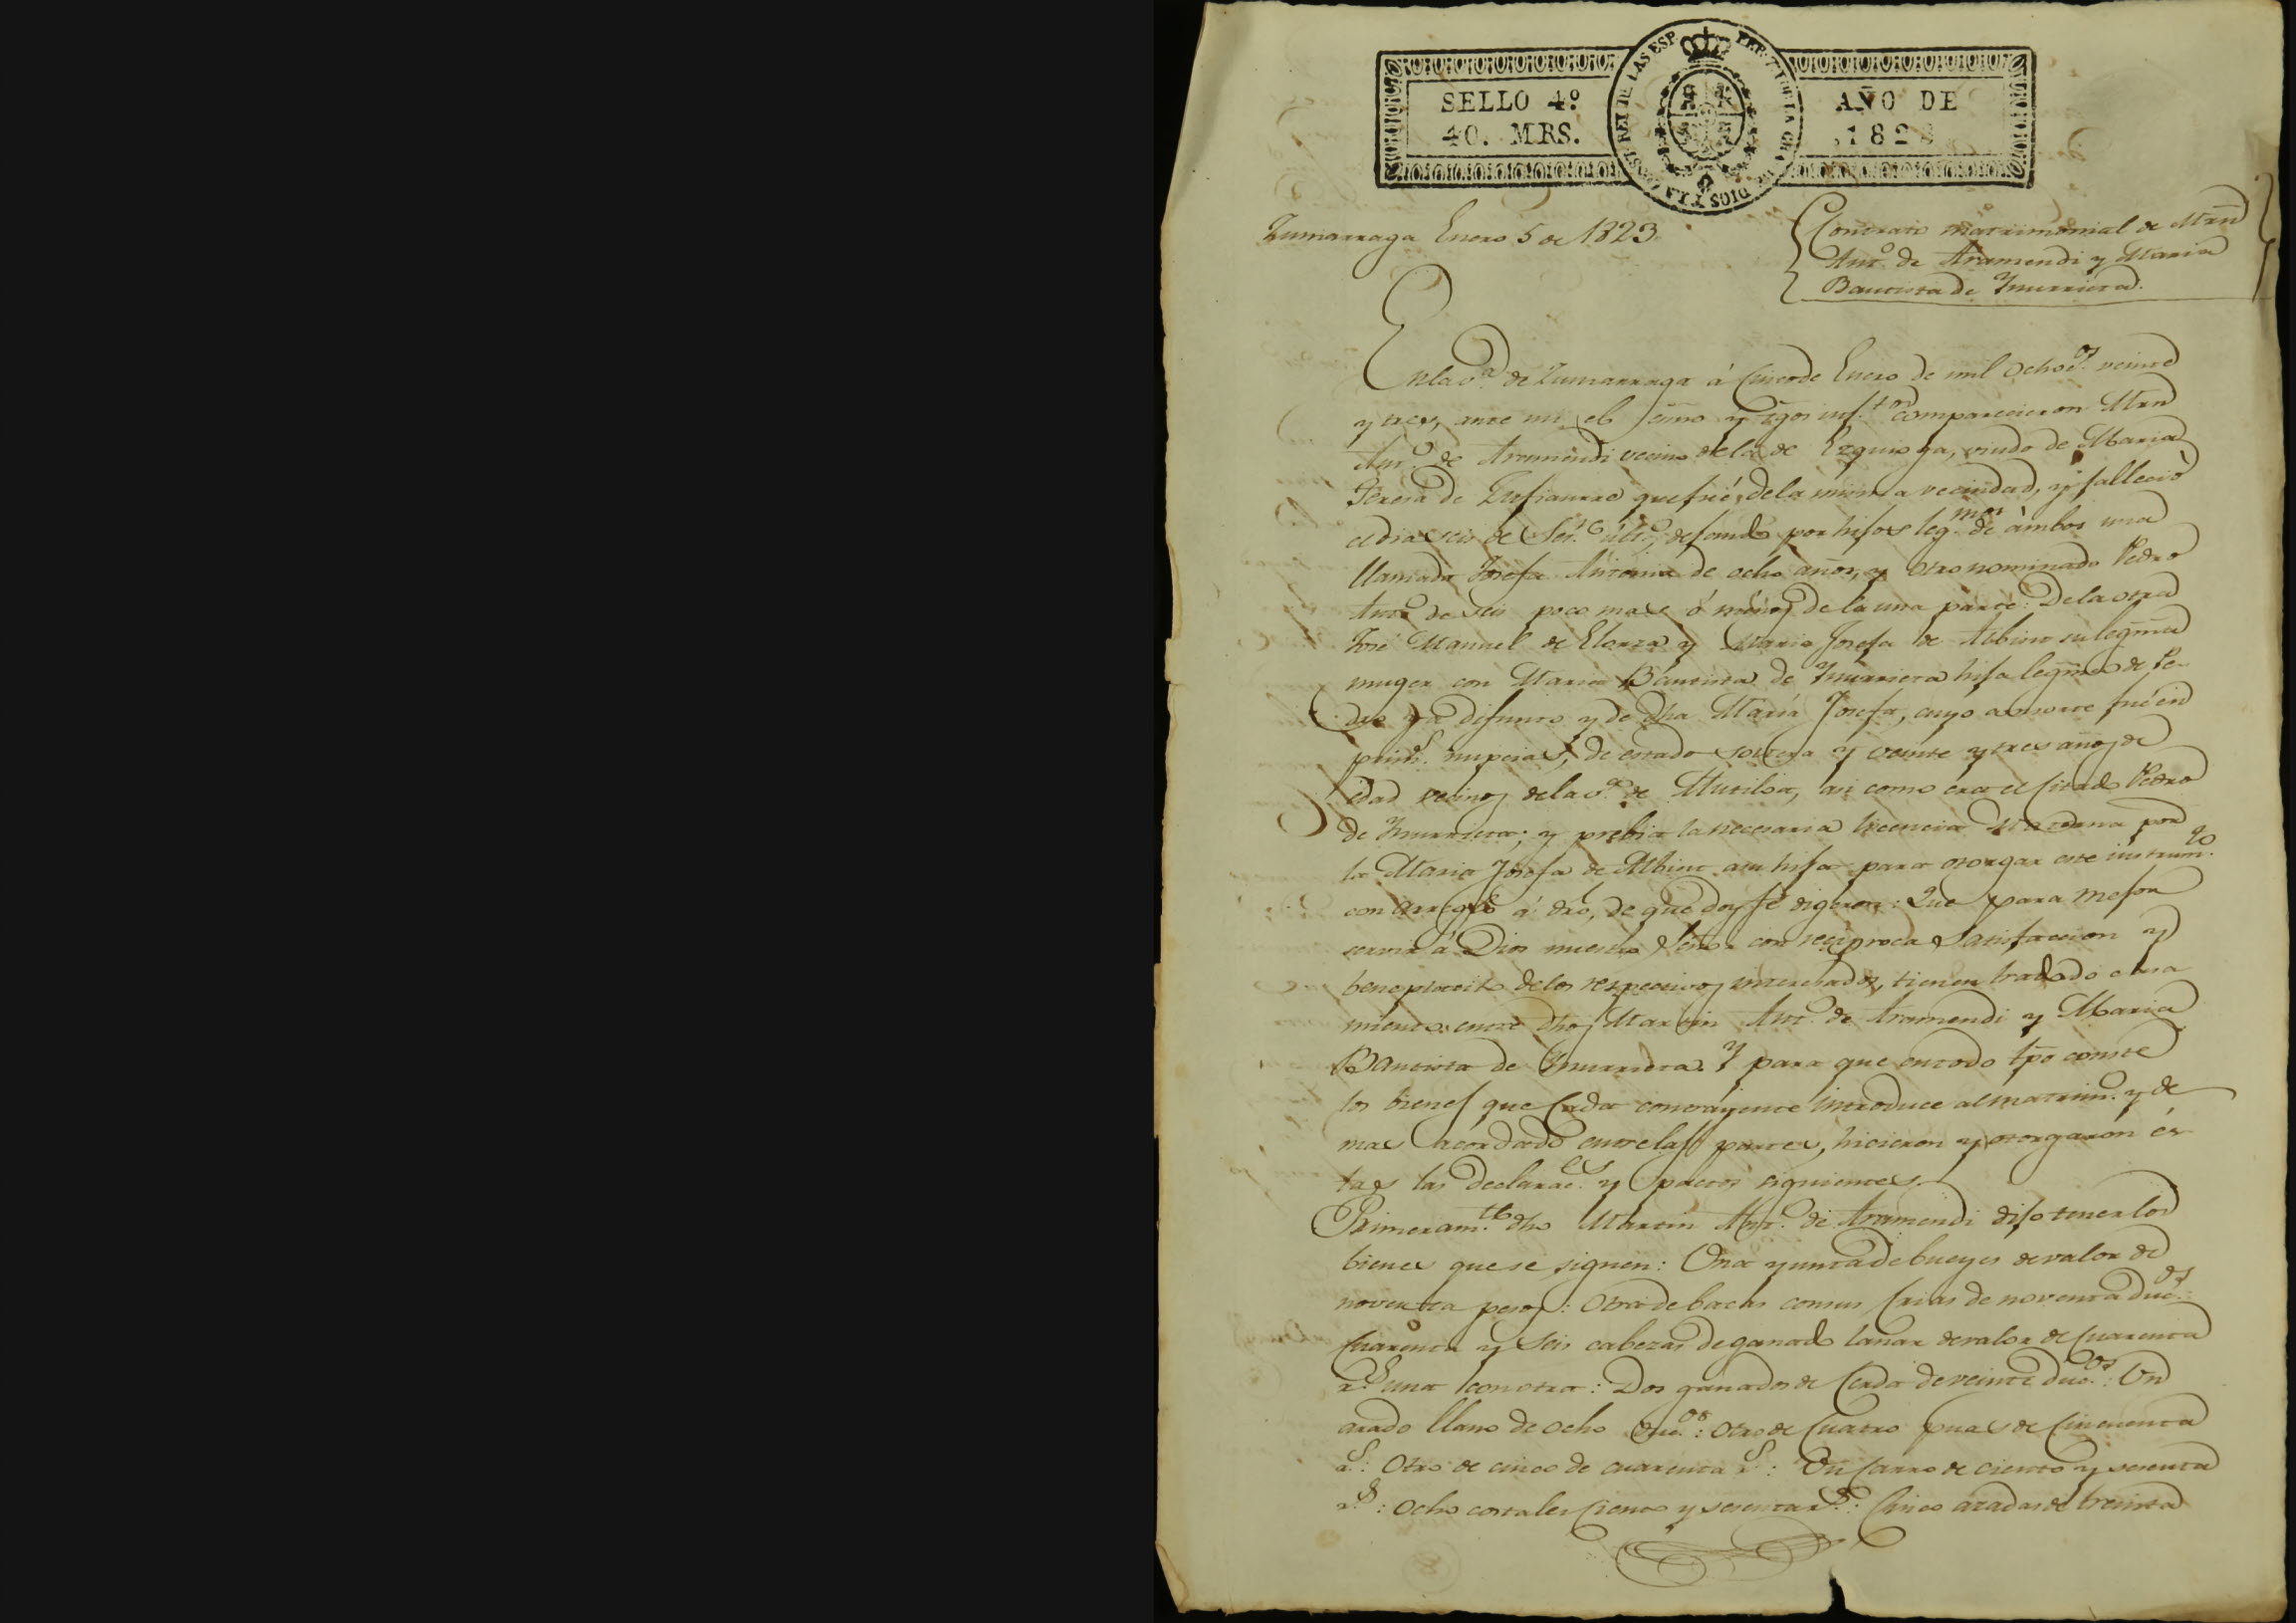 SELLO 4º
40. MRS.
AÑO DE
1823
Zumarraga Enero 5 de 1823.
Contrato matrimonial de Mrn
Antº. de Aramendi y Maria
Bautista de Ynurrieta.
En la vª. de Zumarraga á Cinco de Enero de mil ochoc.os veinte
y tres, ante mi el y tgos comparecieron Mrn
Antº. de Aramendi vecino de la de Ezquioga, viudo de Maria
Teresa de que fué de la misma vecindad, y falleció
el dia seis de últº, dejando por hijos leg.mos de ámbos una
llamada Josefa Antonia de ocho años, y otro nominado Pedro
Antº de seis poco mas ó ménos de la una parte: De la otra
José Manuel de Elorza y Maria Josefa de Albisu su legma
muger con Maria Bautista de Ynurrieta hija legma de Pe-
dro ya difunto y de dha Maria Josefa, cuyo consorte fué en
prim.s nupcias, de estado soltera y veinte y tres años de
edad vecinos de la vª. de Mutiloa, asi como era el citado Pedro
de Ynurrieta; y prebia la necesaria licencia por
la Maria Josefa de Albisu a su hija para otorgar este instrum.to
con arreglo á dro, de que doy fé digeron: Que para mejor
servir á Dios nuestro Señor con reciproca Satisfaccion y
beneplacito de los respectivos interesados, tienen tratado casa
miento entre dhos Martin Antº. de Aramendi y Maria
Bautista de Ynurrieta. Y para que en todo tpo conste
los bienes que Cada contrayente introduce al matrimº. y de
mas acordado entre las partes, hicieron y otorgaron és-
tas las declarac.es y pactos siguientes.
Primeram.te dho Martin Antº. de Aramendi dijo tener los
bienes que se siguen: Una yunta de bueyes de valor de
noventa pesos: Otra de bacas con sus Crias de noventa duc.os:
Cuarenta y Seis cabezas de ganado lanar de valor de Cuarenta
r.s una con otra: Dos ganados de Cerda de veinte duc.os: Un
arado llano de ocho duc.os: Otro de Cuatro puas de Cincuenta
r.s: Otro de cinco de cuarenta r.s: Un Carro de ciento y sesenta
r.s: Ocho costales Ciento y sesenta r.s: Cinco azadas de treinta